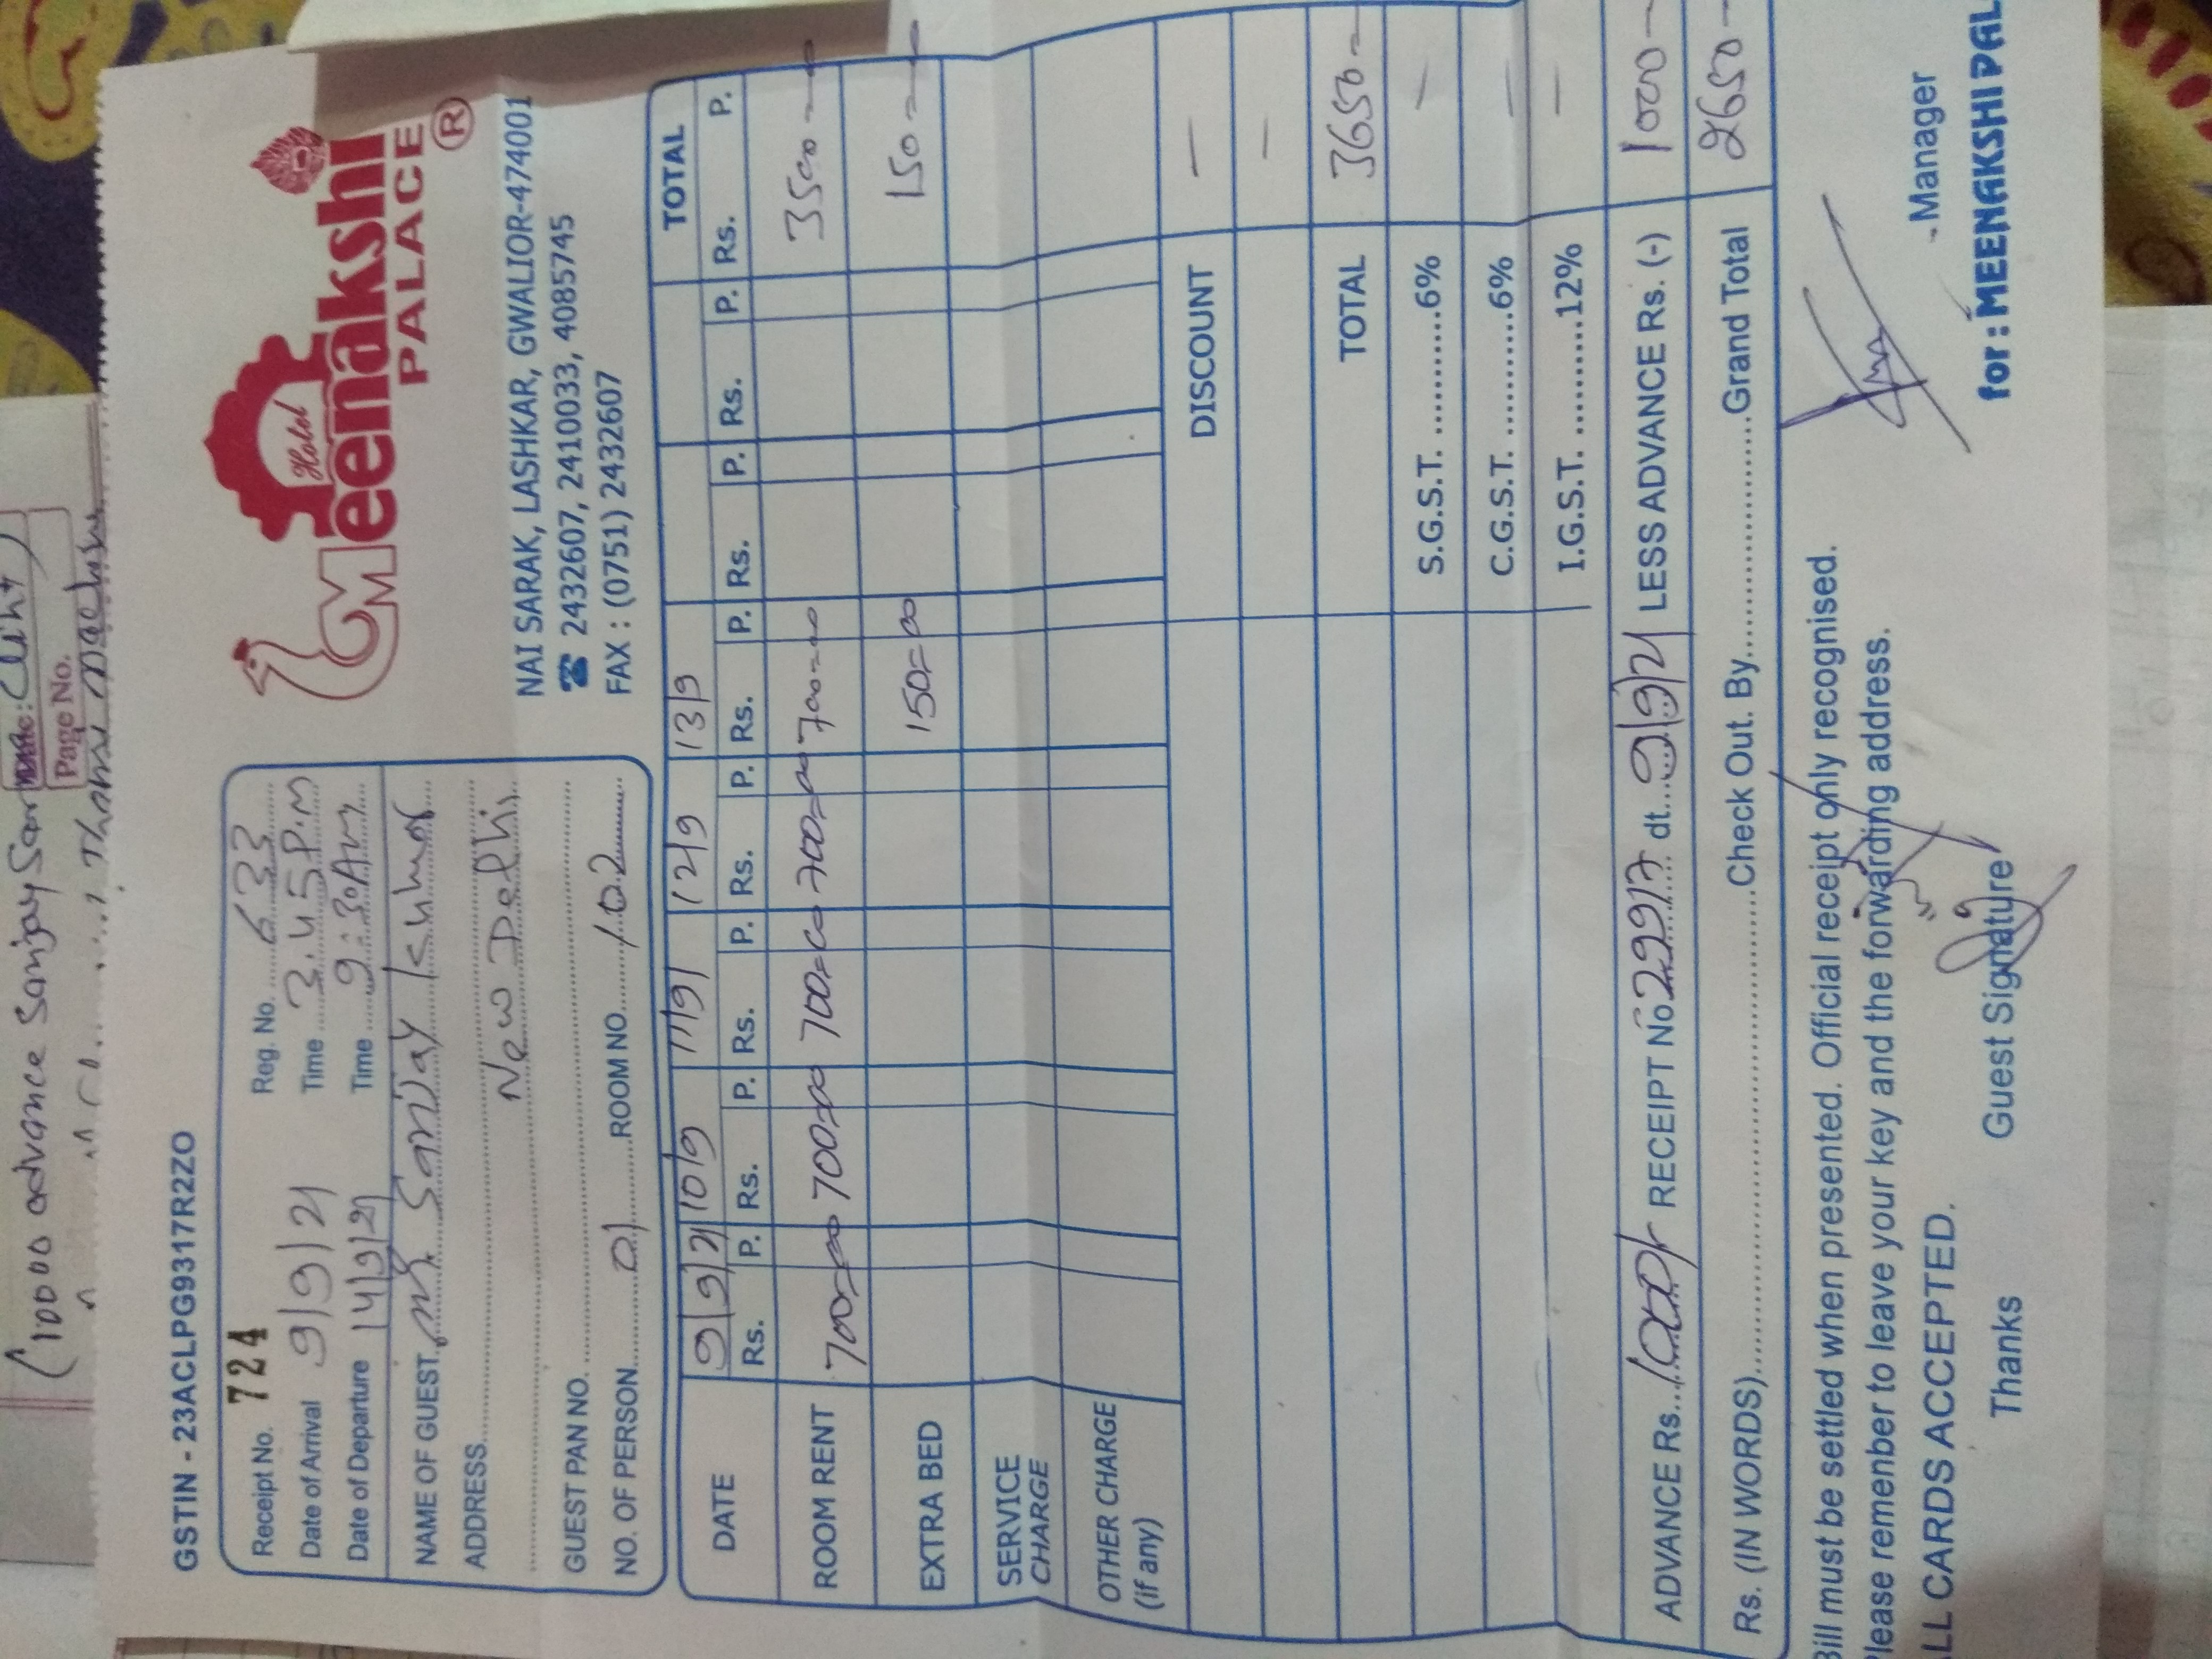 (1000 advance Sanjay
Page No.
GSTIN - 23ACLPG9317R2ZO
Hotel
Meenakshi
PALACE
®
NAI SARAK, LASHKAR, GWALIOR-474001
☎ 2432607, 2410033, 4085745
FAX : (0751) 2432607
Receipt No. 724 Reg. No. 633
Date of Arrival 9/9/21 Time 3.45 P.M
Date of Departure 14/9/21 Time 9:30 AM
NAME OF GUEST Mr. Sanjay Kumar
ADDRESS New Delhi
GUEST PAN NO.
NO. OF PERSON 01 ROOM NO. 102
DATE 9/9/21 10/9 11/9 12/9 13/9 TOTAL
Rs. P. Rs. P. Rs. P. Rs. P. Rs. P. Rs. P. Rs. P. Rs. P.
ROOM RENT 700=00 700=00 700=00 700=00 700=00 3500 —
EXTRA BED 150=00 150 —
SERVICE CHARGE
OTHER CHARGE (if any)
DISCOUNT —
—
TOTAL 3650 =
S.G.S.T. ..........6% —
C.G.S.T. ..........6% —
I.G.S.T. ..........12% —
ADVANCE Rs. 1000/- RECEIPT No 2997 dt. 9/9/21 LESS ADVANCE Rs. (-) 1000 —
Rs. (IN WORDS) Check Out. By Grand Total 2650 —
Bill must be settled when presented. Official receipt only recognised.
Please remenber to leave your key and the forwarding address.
ALL CARDS ACCEPTED.
Manager
Thanks Guest Signature for : MEENAKSHI PAL